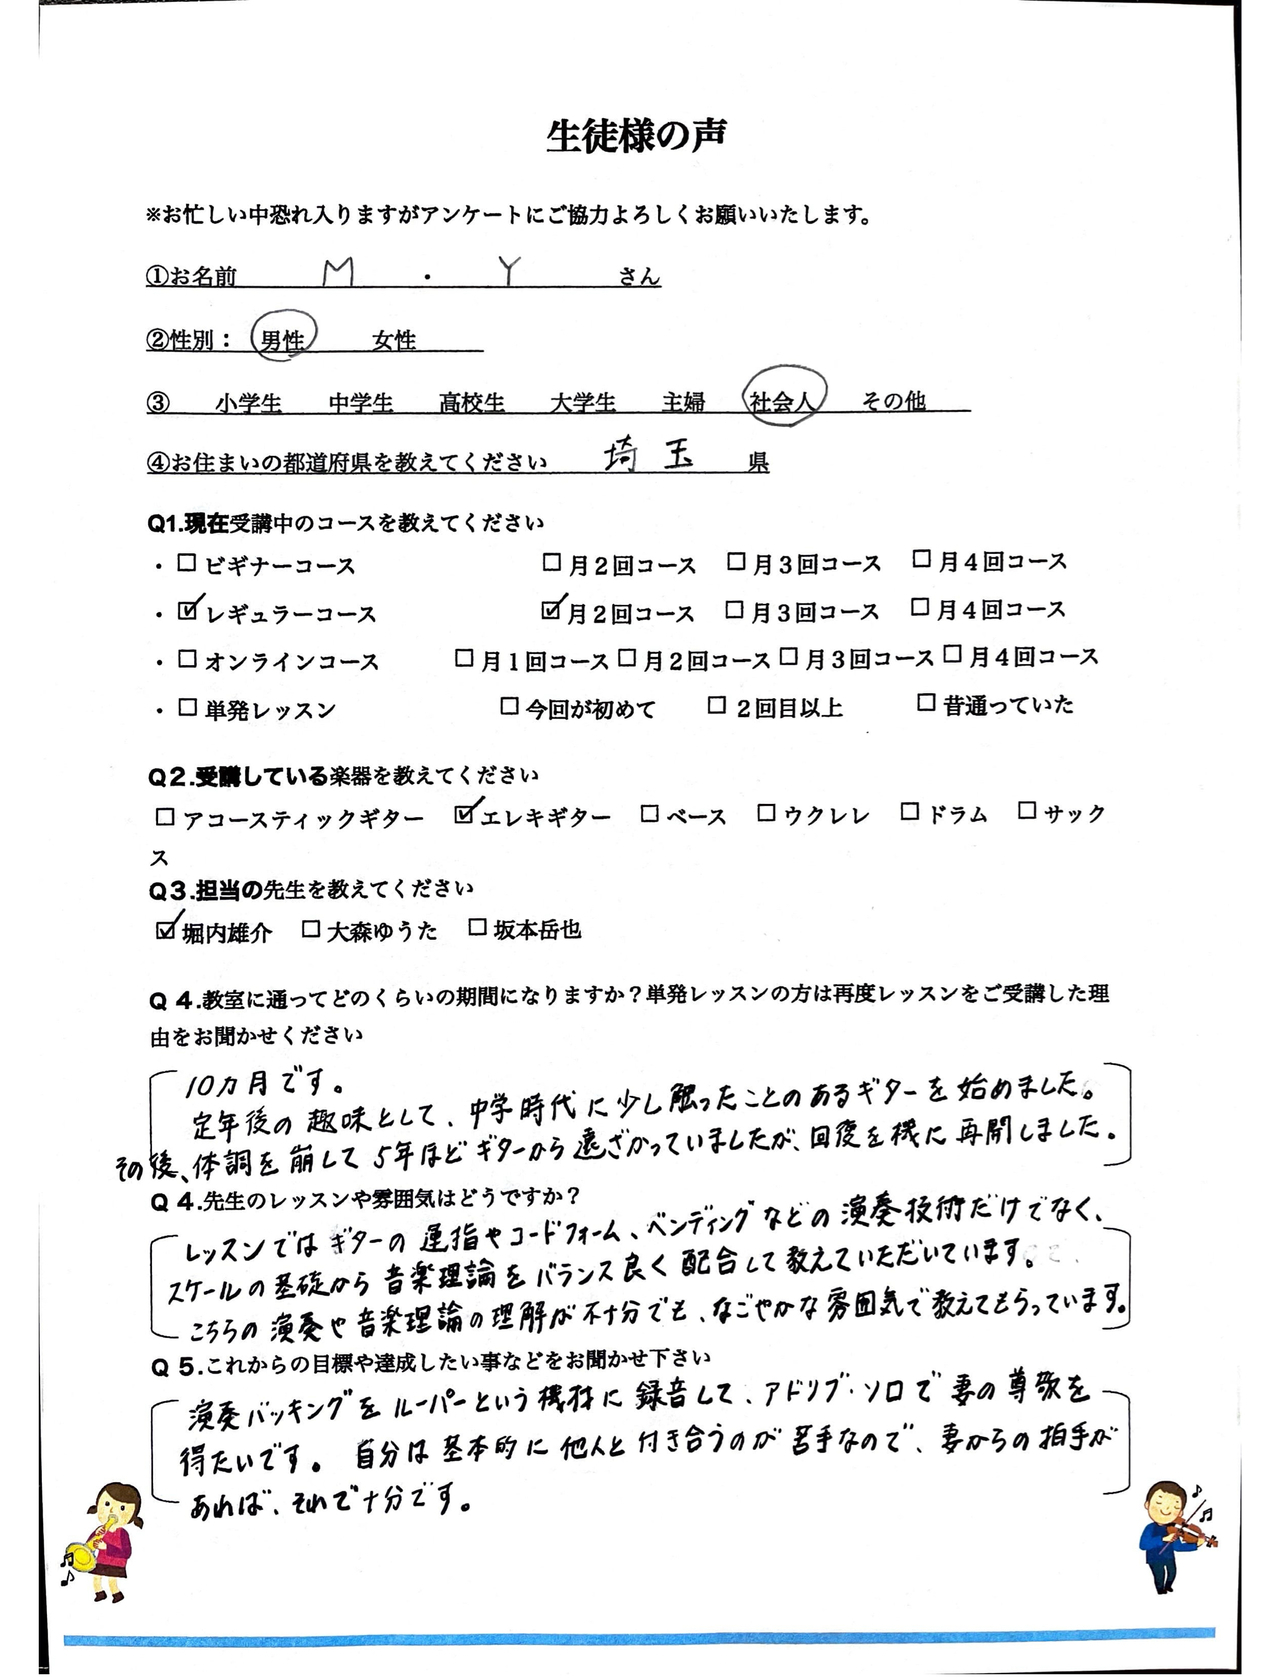 生徒様の声
※お忙しい中恐れ入りますがアンケートにご協力よろしくお願いいたします。
①お名前 M ・ Y さん
②性別： 男性 女性
③ 小学生 中学生 高校生 大学生 主婦 社会人 その他
④お住まいの都道府県を教えてください 埼玉 県
Q1.現在受講中のコースを教えてください
・☐ビギナーコース ☐月２回コース ☐月３回コース ☐月４回コース
・☑レギュラーコース ☑月２回コース ☐月３回コース ☐月４回コース
・☐オンラインコース ☐月１回コース ☐月２回コース ☐月３回コース ☐月４回コース
・☐単発レッスン ☐今回が初めて ☐２回目以上 ☐昔通っていた
Q２.受講している楽器を教えてください
☐アコースティックギター ☑エレキギター ☐ベース ☐ウクレレ ☐ドラム ☐サック
ス
Q３.担当の先生を教えてください
☑堀内雄介 ☐大森ゆうた ☐坂本岳也
Q４.教室に通ってどのくらいの期間になりますか？単発レッスンの方は再度レッスンをご受講した理
由をお聞かせください
10カ月です。
定年後の趣味として、中学時代に少し触ったことのあるギターを始めました。
その後、体調を崩して5年ほどギターから遠ざかっていましたが、回復を機に再開しました。
Q４.先生のレッスンや雰囲気はどうですか？
レッスンではギターの運指やコードフォーム、ベンディングなどの演奏技術だけでなく、
スケールの基礎から音楽理論をバランス良く配合して教えていただいています。
こちらの演奏や音楽理論の理解が不十分でも、なごやかな雰囲気で教えてもらっています。
Q５.これからの目標や達成したい事などをお聞かせ下さい
演奏バッキングをルーパーという機材に録音して、アドリブ・ソロで妻の尊敬を
得たいです。 自分は基本的に他人と付き合うのが苦手なので、妻からの拍手が
あれば、それで十分です。